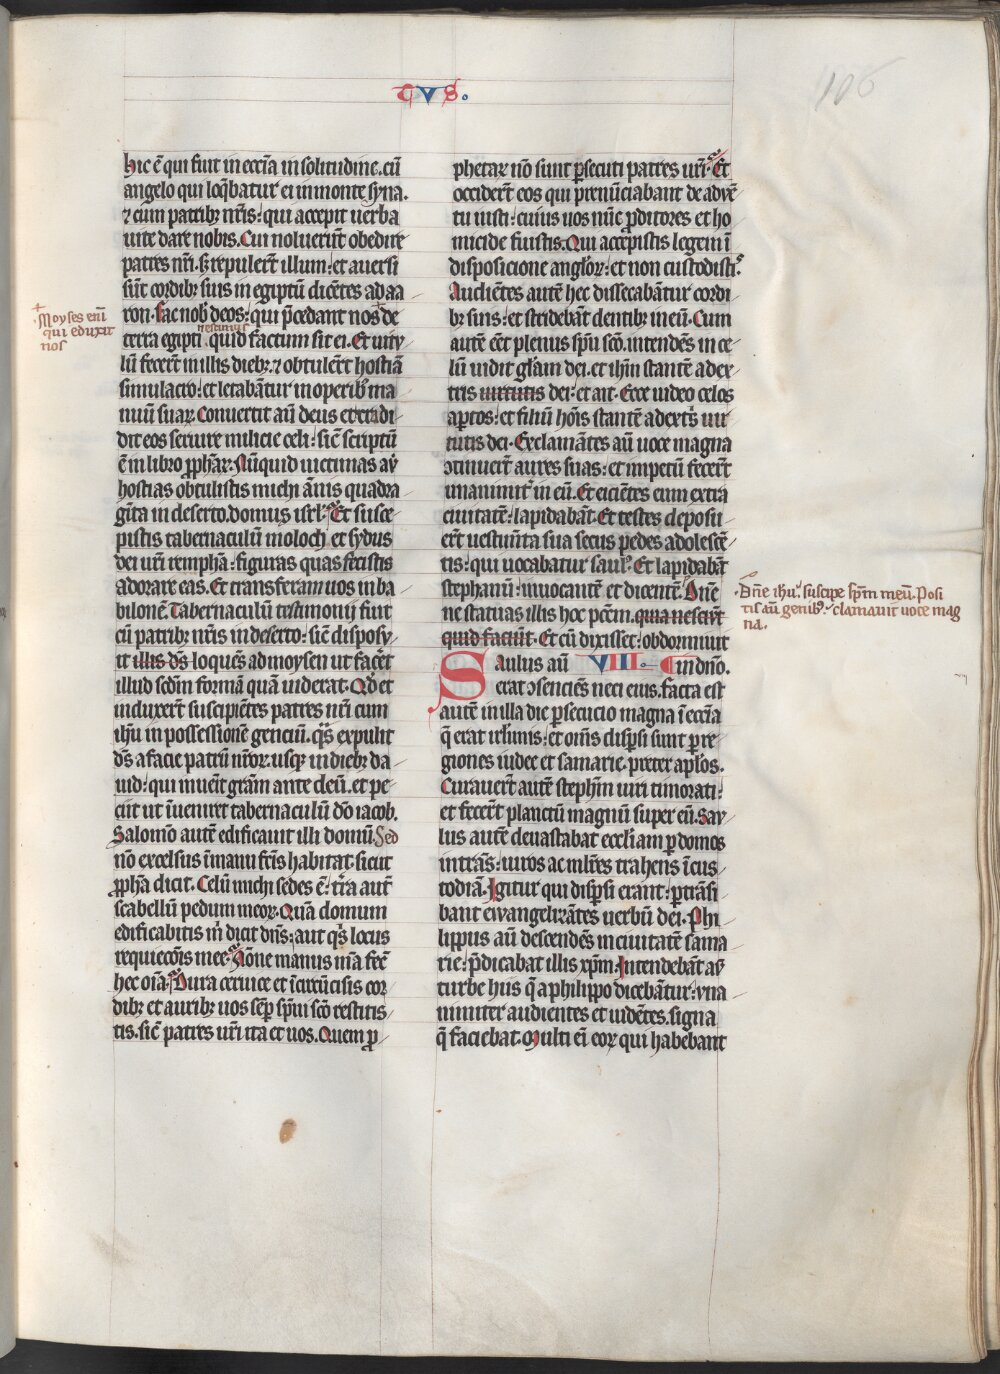 TVS.
106
hic ē qui fuit in ecc̄ia in solitudine. cū
angelo qui loq̄batur ei in monte syna.
⁊ cum patribꝫ nr̄is: qui accepit uerba
uite dare nobis. Cui noluerūt obedire
patres nr̄i. sꝫ repulerūt illum: et auersi
sūt cordibꝫ suis in egiptū dicētes ad aa
ron. Fac nob̾ deos: qui p̄cedant nos de
+ Moyses eni̅
qui eduxit
nos
nescimus
terra egipti quid factum sit ei. Et uitu
lū fecerūt in illis diebꝫ. ⁊ obtulerūt hostiā
simulacro: et letabātur in operibꝫ ma
nuū suaꝝ. Conuertit aū deus et tradi
dit eos seruire milicie celi: sic̄ scriptū
ē in libro ꝓphāꝝ. Nūquid uictimas aut̾
hostias obtulistis michi ānis quadra
gīta in deserto. domus isrl̄. Et susce
pistis tabernaculū moloch et sydus
dei ur̄i remphā: figuras quas fecistis
adorare eas. Et transferam uos in ba
bilonē. Tabernaculū testimonij fuit
cū patribꝫ nr̄is in deserto: sic̄ disposu
it illis ds̄ loquēs ad moysen ut fac̾et
illud sc̄dm formā quā uiderat. Qd̾ et
induxer̄t suscipiētes patres nr̄i cum
ih̄u in possessionē genciū. q̄s expulit
ds̄ a facie patrū nr̄oꝝ. usqꝫ in diebꝫ da
uid: qui inuen̄it gr̄am ante deū. et pe
ciit ut īueniret tabernaculū dō iacob.
Salomō autē edificauit illi domū. Sed
nō excelsus ī manu fc̄is habitat. sicut
ꝓph̄a dicit. Celū michi sedes ē: tr̄ra aut̄
scabellū pedum meoꝝ. Quā domum
edificabitis m̄ dicit dn̄s: aut q̄s locus
requiec̄ōis mee. None manus m̄a fec̄
hec oīa. Dura ceruice et īcircūcisis cor
dibꝫ et auribꝫ uos sēp̄ sp̄ui sc̄o restitis
tis. sic̄ patres ur̄i ita et uos. Quem ꝓ
phetaꝝ nō sunt ꝑsecuti patres ur̄i. Et
occider̄t eos qui prenūciabant de aduē
tu iusti: cuius uos nūc ꝓditores et ho
micide fuistis. Qui accepistis legem ī
disposicione angl̾oꝝ: et non custodisti.ˢ
Audiētes autē hec dissecabāntur cordi
bꝫ suis: et stridebāt dentibꝫ in eū. Cum
autē eēt plenus sp̄u sc̄o. intendēs in ce
lū uidit gl̄am dei. et ih̄m stantē a dex
tris uirtutis dei: et ait. Ecce uideo celos
aꝑtos: et filiū hōis stantē a dextꝭs uir
tutis dei. Exclamātes aū uoce magna
ↄtinuer̄t aures suas: et impetū fecer̄t
unanimit̾ in eū. Et eiciētes eum extra
ciuitatē: lapidabāt. Et testes deposu
er̄t uestimēta sua secus pedes adolescē
tis: qui uocabatur saulꝰ. Et lapidabāt
stephanū: inuocantē et dicentē. Dn̄e
Dn̄e ih̄u. suscipe sp̄m meū. Posi
tis aū. genibꝰ. clamauit uoce mag
na.
ne statuas illis hoc pc̄cm. quia nesciūt
quid faciūt. Et cū dixisset: obdormiuit
Saulus aū VIII. in dn̄o.
erat ↄsenciēs neci eius. facta est
autē in illa die ꝑsecucio magna ī ecc̄ia
q̄ erat irl̄imis: et om̄s disꝑsi sunt ꝑ re
giones iudee et samarie. preter apl̾os.
Curauer̄t autē steph̄m uiri timorati:
et fecer̄t planctū magnū super eū. Sau
lus autē deuastabat eccl̄iam ꝑ domos
intrās: uiros ac mlr̄es trahens ī cus
todiā. Igitur qui disꝑsi erant: ꝑtrāsi
bant ewangelizātes uerbū dei. Phi
lippus aū descendēs in ciuitatē sama
rie: p̄dicabat illis xp̄m. Intendebāt aū
turbe hiis q̄ a philippo dicebātur: vna
nimiter audientes et uidētes. signa
q̄ faciebat. Multi eī eoꝝ qui habebant